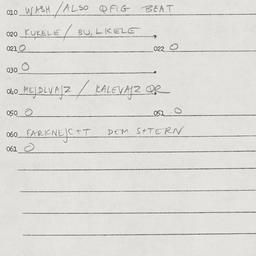 010 WASH / ALSO OFIG BEAT
020 KUKELE / BU, LKELE
021 0 022 0
030 0
040 HEJDLVAJZ / KALEVAJZ OR
050 0 051 0
060 FARKNEJCTT DEM SATERN
061 0